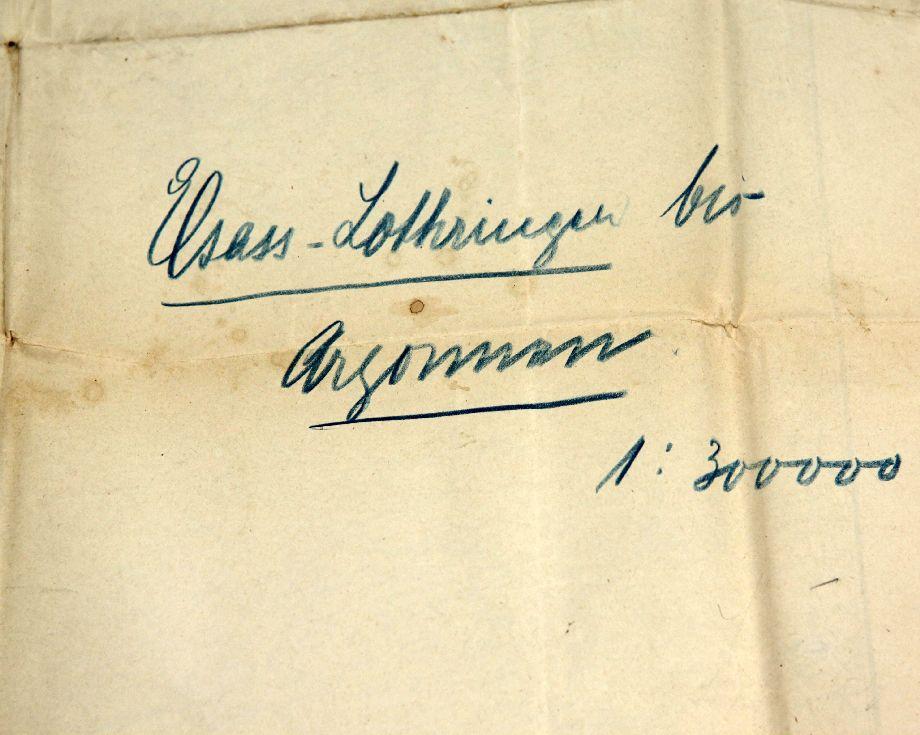 Elsass-Lothringen bis
Argonnen
1:300000